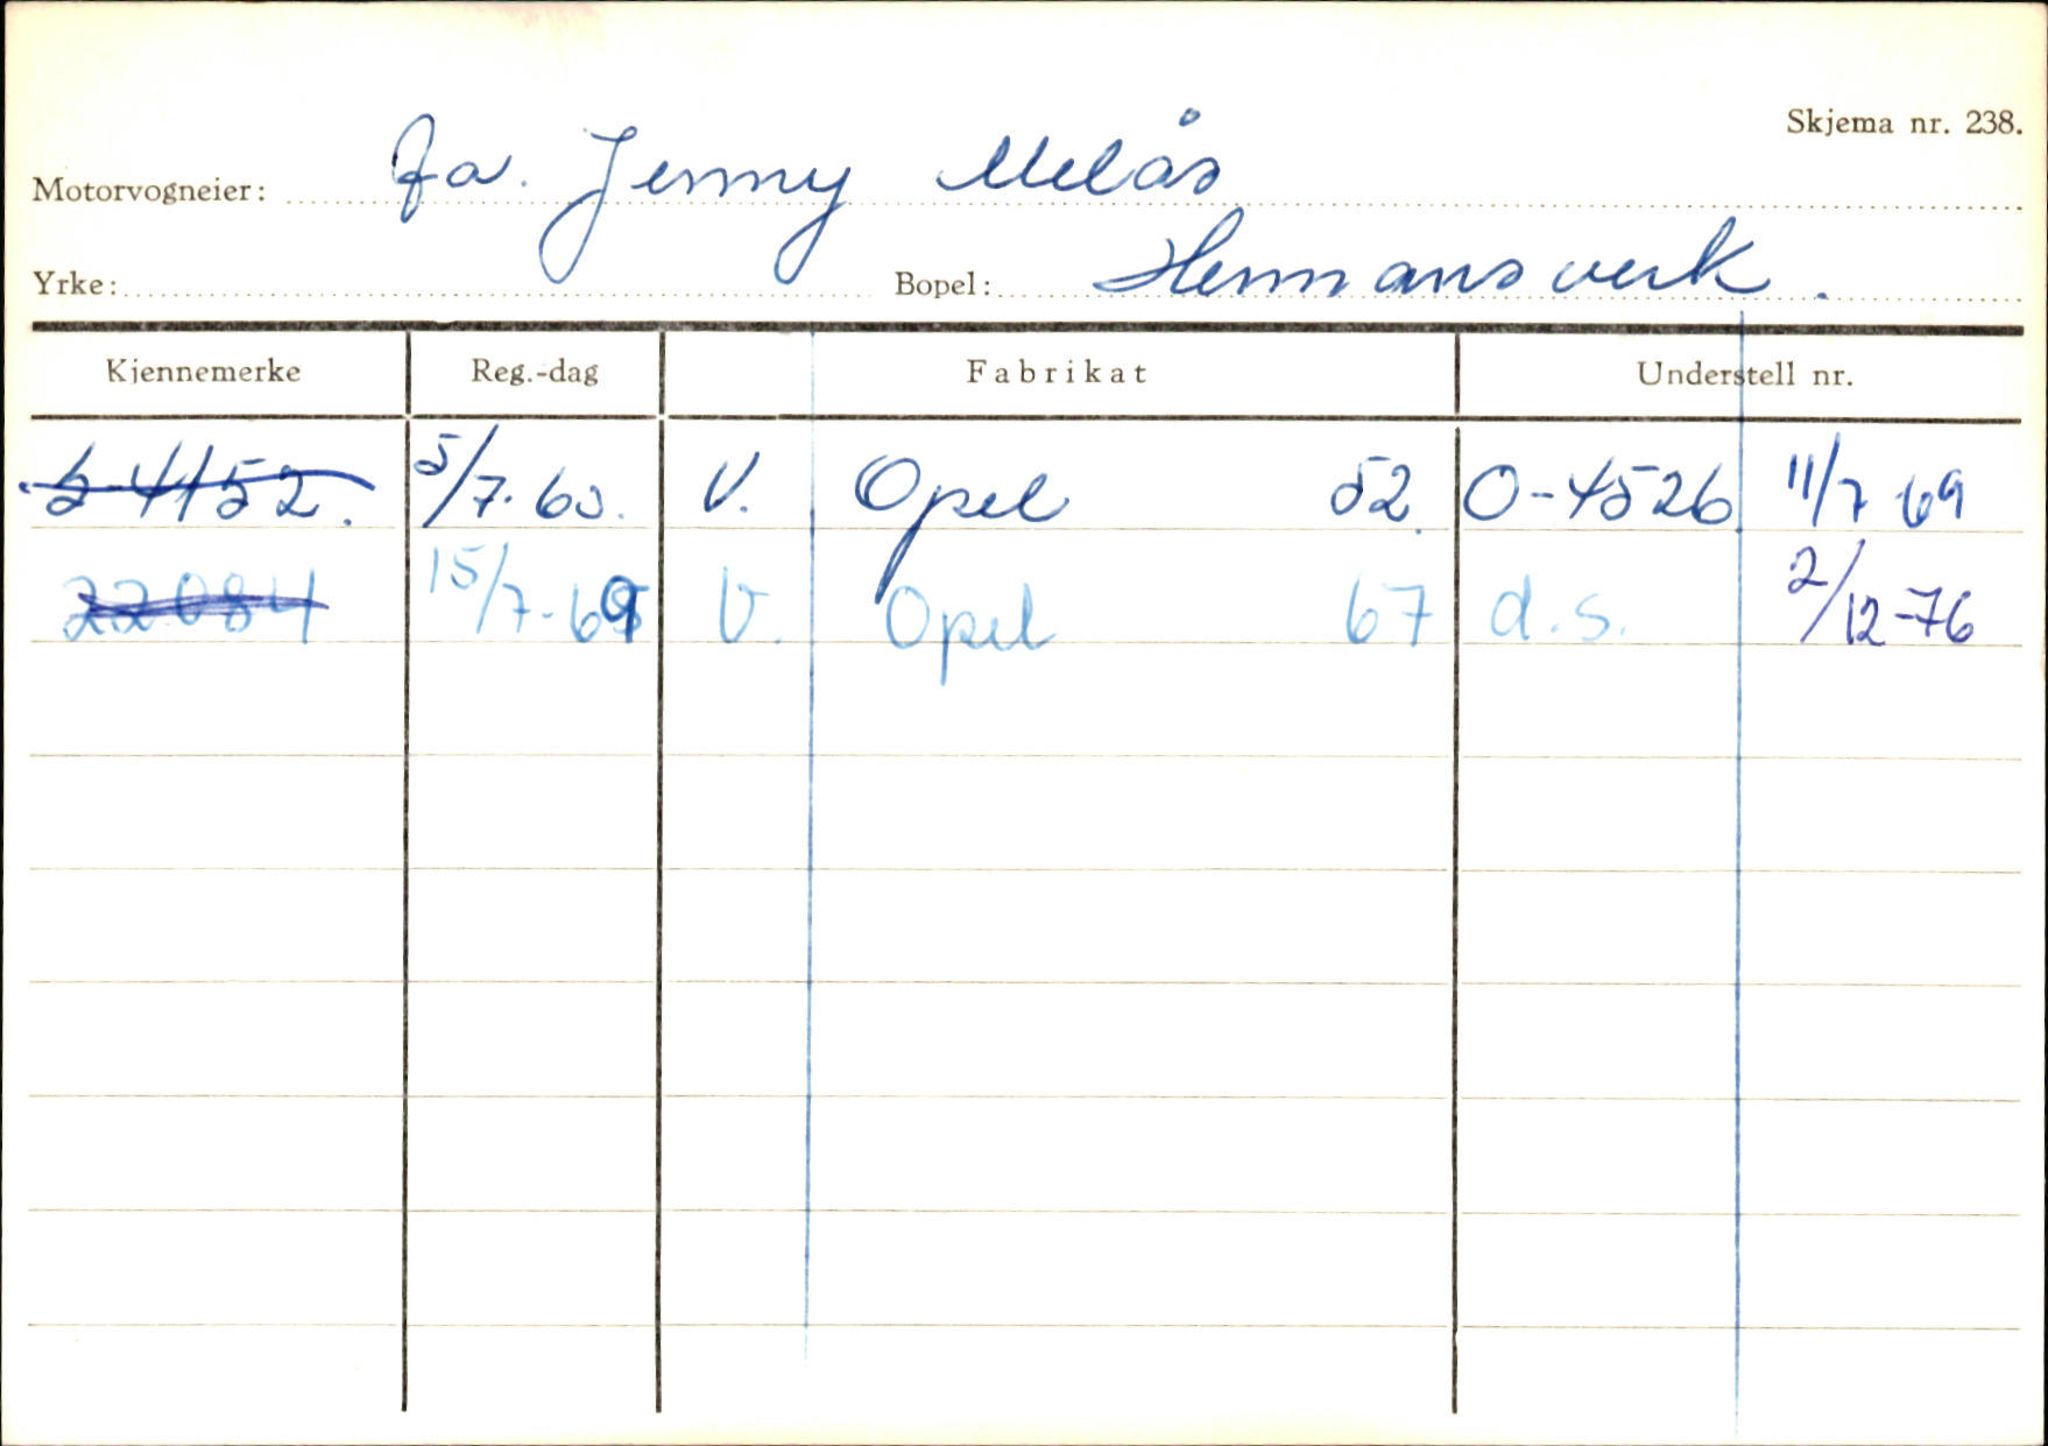 Skjema nr. 238.
Motorvogneier: fa. Jenny Melås
Yrke: Bopel: Hermansverk.
Kjennemerke Reg.-dag Fabrikat Understell nr.
S-4152. 5/7-60. V. Opel 52. O-4526 11/7 69
22084 15/7-69 V. Opel 67 d.s. 2/12-76